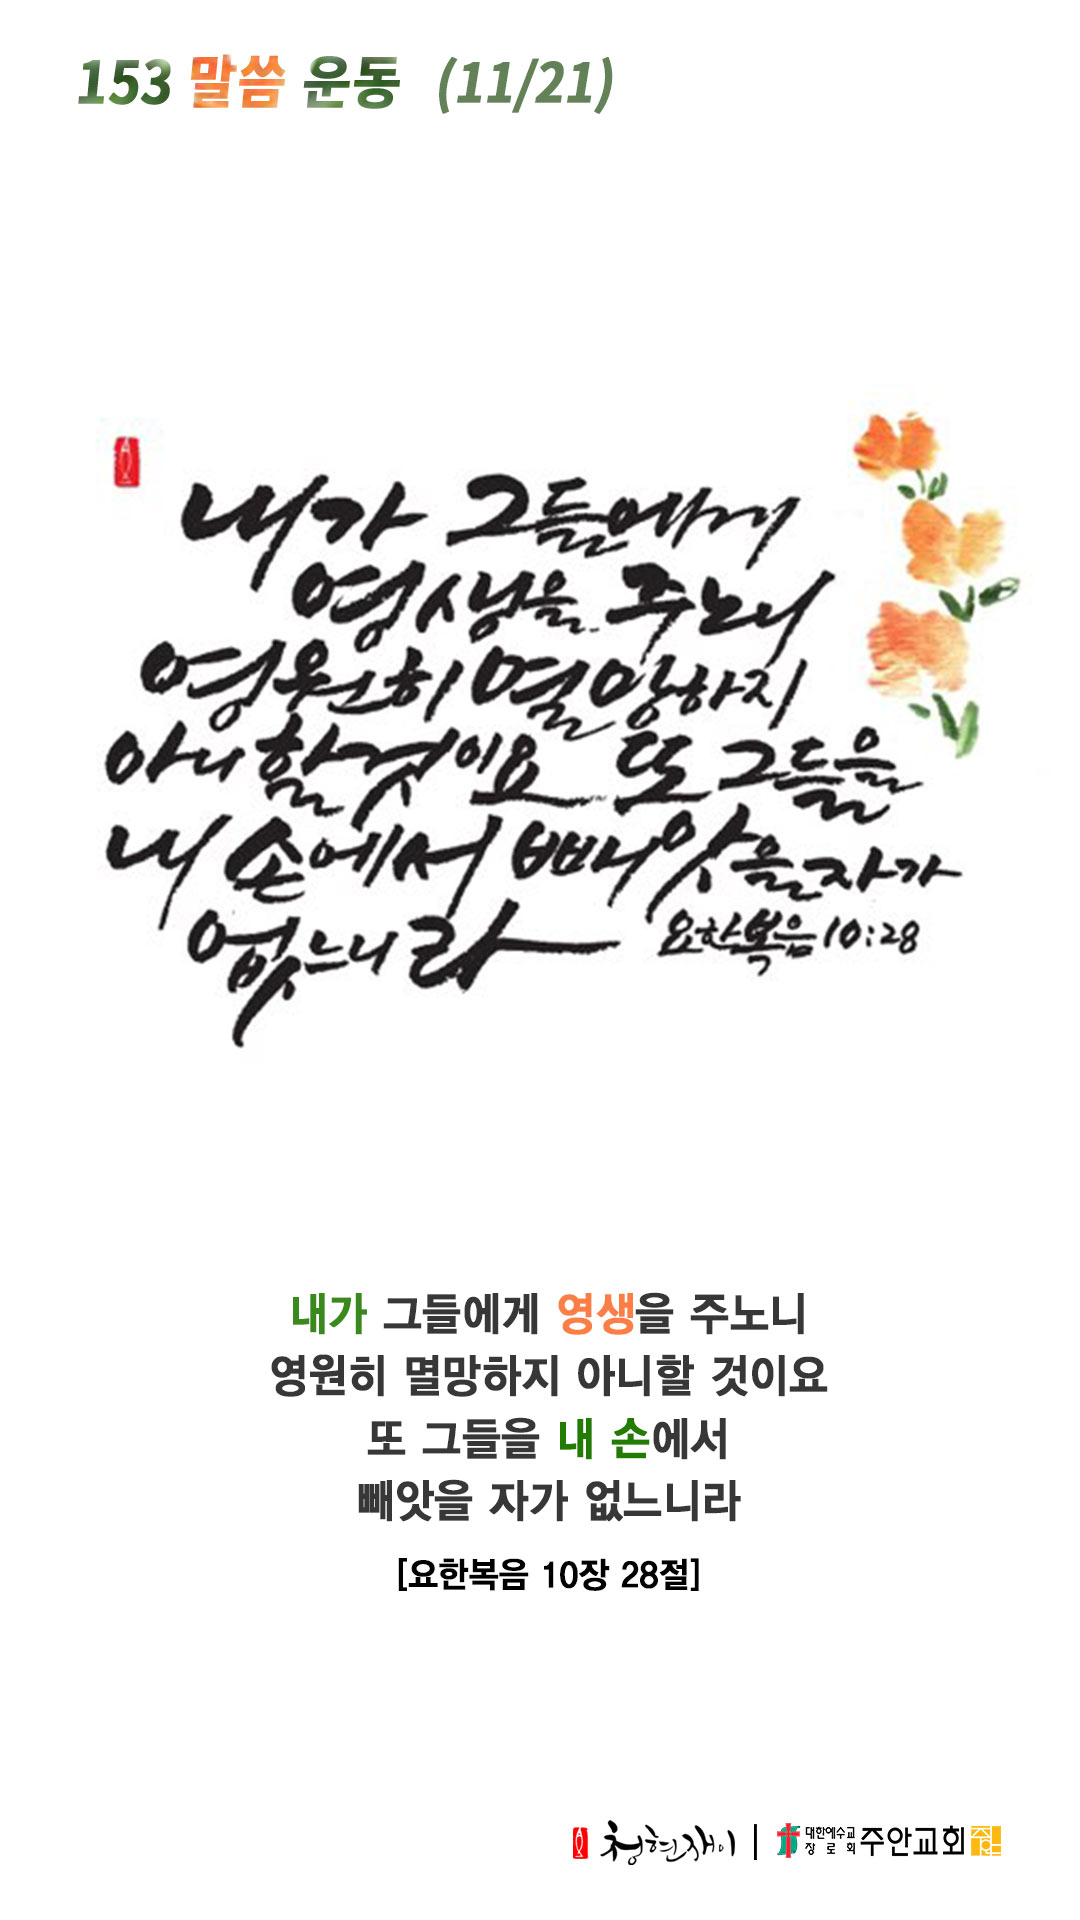 153 말씀 운동 (11/21)
내가 그들에게
영생을 주노니
영원히 멸망하지
아니할것이요 또 그들을
내 손에서 빼앗을자가
없느니라 요한복음 10:28
내가 그들에게 영생을 주노니
영원히 멸망하지 아니할 것이요
또 그들을 내 손에서
빼앗을 자가 없느니라
[요한복음 10장 28절]
청현재이 | 대한예수교 장로회 주안교회 주안